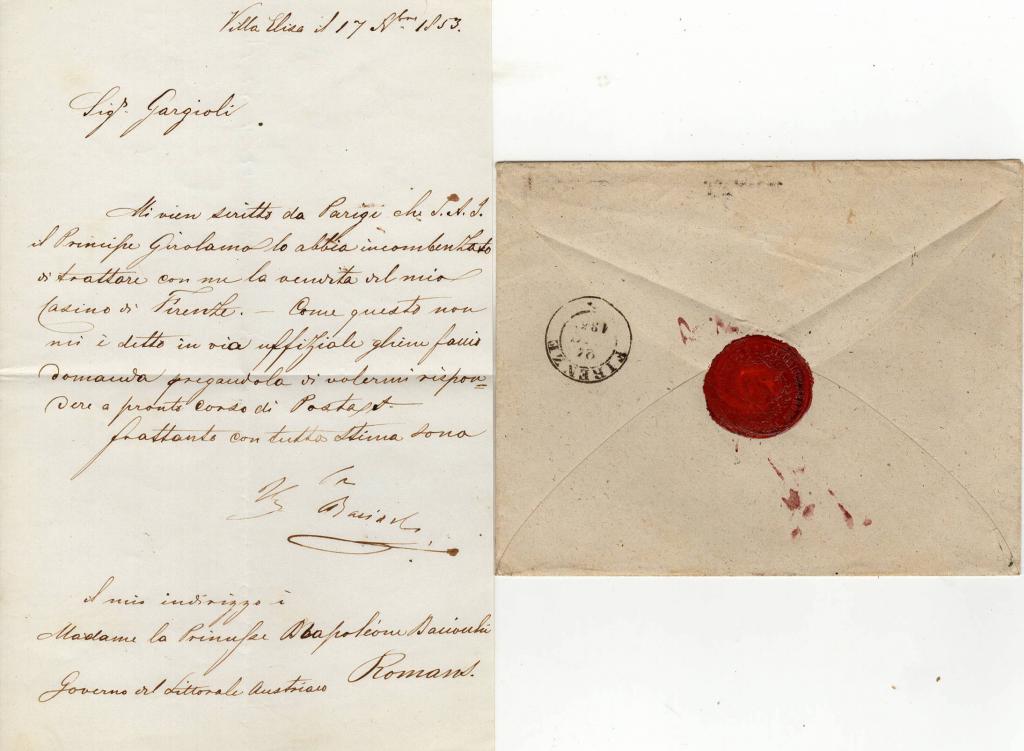 Villa Elisa il 17 Nbre 1853.
Sigr. Gargioli
Mi vien scritto da Parigi che S. A. I.
il Principe Girolamo lo abbia incombenzato
di trattare con me la vendita del mio
Casino di Firenze. — Come questo non
mi è detto in via uffiziale gliene faccio
domanda pregandola di volermi rispon=
dere a pronto corso di Posta
frattanto con tutta stima sono
il mio indirizzo è
Madame la Princesse Napoléone Baciocchi
Romans.
Governo del Littorale Austriaco
FIRENZE